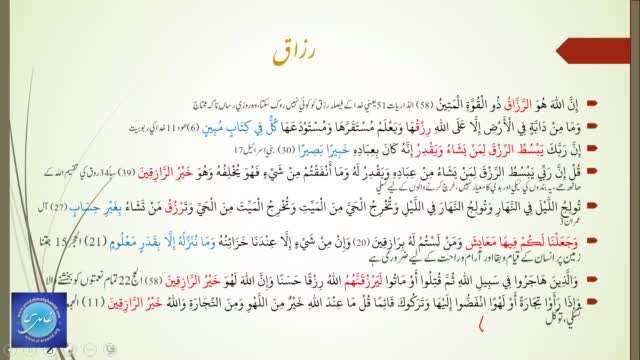 رزاق
إِنَّ اللَّهَ هُوَ الرَّزَّاقُ ذُو الْقُوَّةِ الْمَتِينُ (58) الذاریات 51 یعنی خدا کے فیصلہ رزق کو کوئی نہیں روک سکتا، وہ روزی رساں نا کہ محتاج
وَمَا مِنْ دَابَّةٍ فِي الْأَرْضِ إِلَّا عَلَى اللَّهِ رِزْقُهَا وَيَعْلَمُ مُسْتَقَرَّهَا وَمُسْتَوْدَعَهَا كُلٌّ فِي كِتَابٍ مُبِينٍ (6) ھود 11 خدا کی ربوبیت
إِنَّ رَبَّكَ يَبْسُطُ الرِّزْقَ لِمَنْ يَشَاءُ وَيَقْدِرُ إِنَّهُ كَانَ بِعِبَادِهِ خَبِيرًا بَصِيرًا (30) بنی اسرائیل 17
قُلْ إِنَّ رَبِّي يَبْسُطُ الرِّزْقَ لِمَنْ يَشَاءُ مِنْ عِبَادِهِ وَيَقْدِرُ لَهُ وَمَا أَنْفَقْتُمْ مِنْ شَيْءٍ فَهُوَ يُخْلِفُهُ وَهُوَ خَيْرُ الرَّازِقِينَ (39) سبا 34 رزق کی تقسیم اللہ کے
ہاتھ ہے، یہ بندوں کی نیکی اور بدی کا معیار نہیں، خرچ کرنے والوں کے لیے تسلی
تُولِجُ اللَّيْلَ فِي النَّهَارِ وَتُولِجُ النَّهَارَ فِي اللَّيْلِ وَتُخْرِجُ الْحَيَّ مِنَ الْمَيِّتِ وَتُخْرِجُ الْمَيِّتَ مِنَ الْحَيِّ وَتَرْزُقُ مَنْ تَشَاءُ بِغَيْرِ حِسَابٍ (27) آل
عمران 3
وَجَعَلْنَا لَكُمْ فِيهَا مَعَايِشَ وَمَنْ لَسْتُمْ لَهُ بِرَازِقِينَ (20) وَإِنْ مِنْ شَيْءٍ إِلَّا عِنْدَنَا خَزَائِنُهُ وَمَا نُنَزِّلُهُ إِلَّا بِقَدَرٍ مَعْلُومٍ (21) الحجر 15 جتنا
زمین پر انسان کے قیام و بقا اور آرام و راحت کے لیے ضروری ہے
وَالَّذِينَ هَاجَرُوا فِي سَبِيلِ اللَّهِ ثُمَّ قُتِلُوا أَوْ مَاتُوا لَيَرْزُقَنَّهُمُ اللَّهُ رِزْقًا حَسَنًا وَإِنَّ اللَّهَ لَهُوَ خَيْرُ الرَّازِقِينَ (58) الحج 22 تمام نعمتوں کو بخشنے والا
وَإِذَا رَأَوْا تِجَارَةً أَوْ لَهْوًا انْفَضُّوا إِلَيْهَا وَتَرَكُوكَ قَائِمًا قُلْ مَا عِنْدَ اللَّهِ خَيْرٌ مِنَ اللَّهْوِ وَمِنَ التِّجَارَةِ وَاللَّهُ خَيْرُ الرَّازِقِينَ (11)
تسلی، توکل